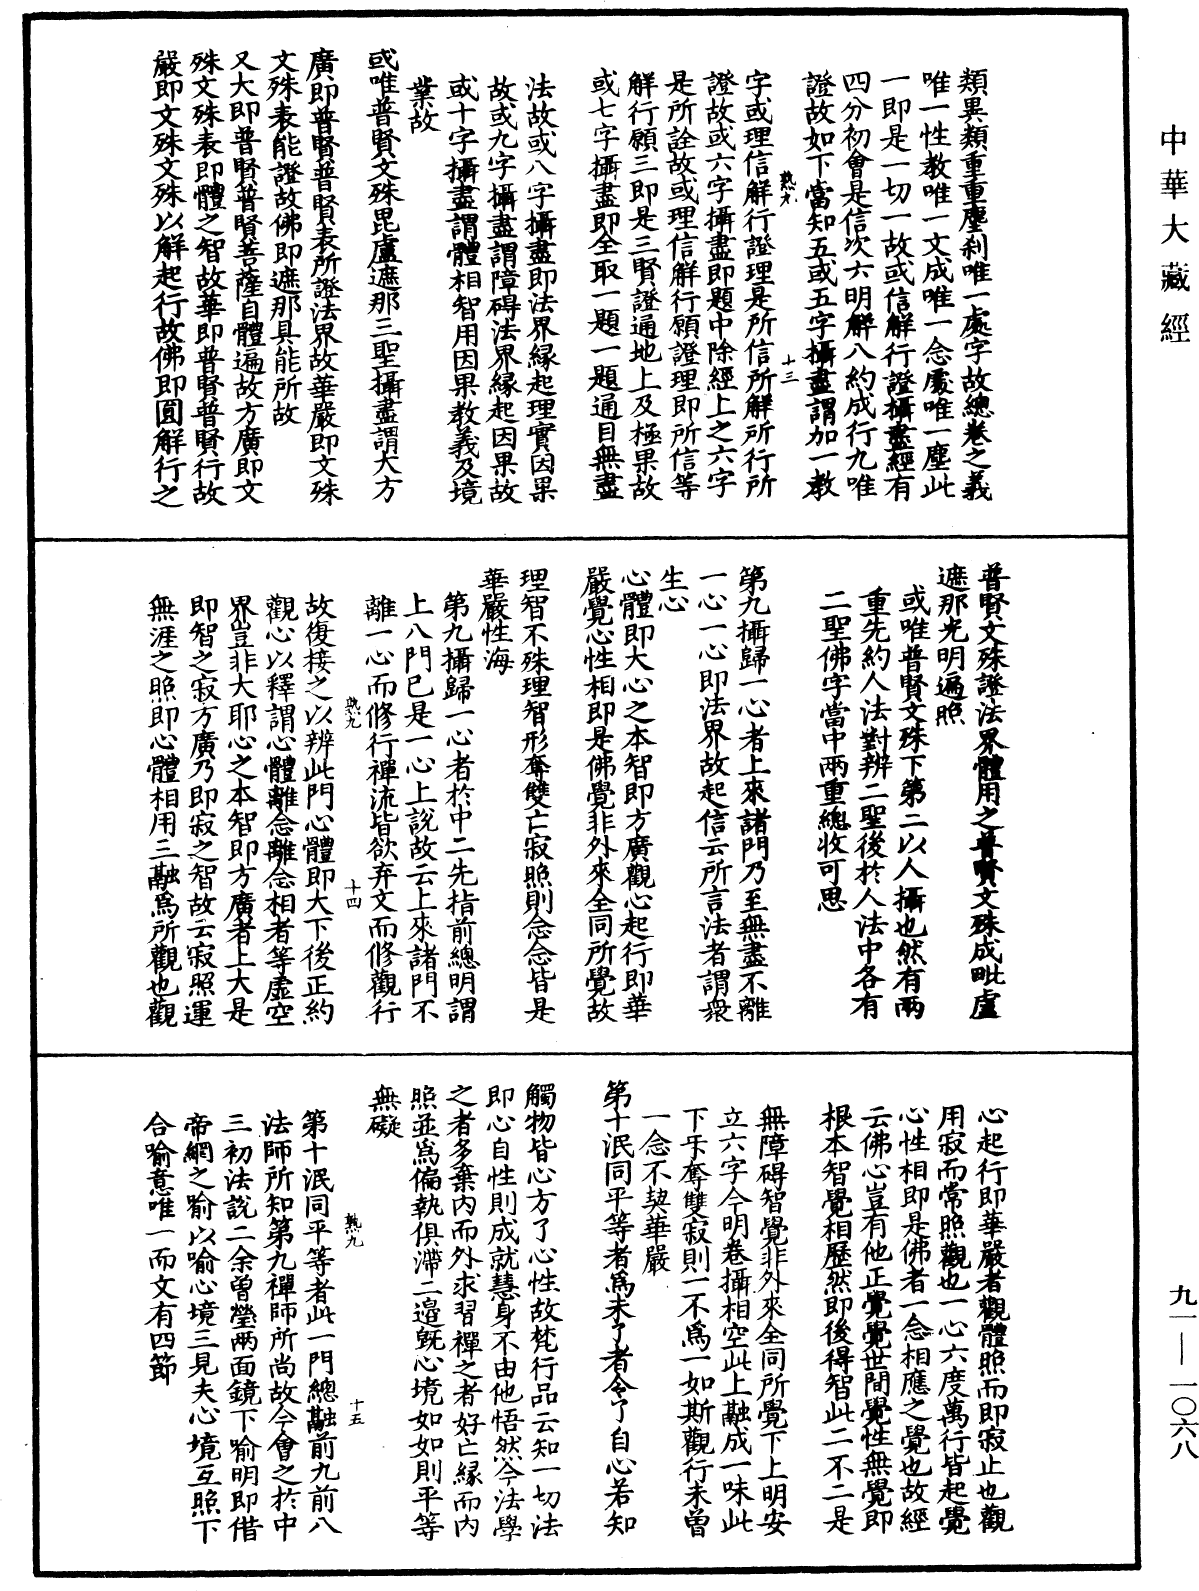 中華大藏經
類異類重重塵刹唯一處字故總卷之義
唯一性教唯一文成唯一念處唯一塵此
一即是一切一故或信解行證攝盡經有
四分初會是信次六明解八約成行九唯
證故如下當知五或五字攝盡謂加一教
字或理信解行證理是所信所解所行所
證故或六字攝盡即題中除經上之六字
是所詮故或理信解行願證理即所信等
解行願三即是三賢證通地上及極果故
或七字攝盡即全取一題一題通目無盡
法故或八字攝盡即法界緣起理實因果
故或九字攝盡謂障碍法界緣起因果故
或十字攝盡謂體相智用因果教義及境
業故
或唯普賢文殊毘盧遮那三聖攝盡謂大方
廣即普賢普賢表所證法界故華嚴即文殊
文殊表能證故佛即遮那具能所故
又大即普賢普賢菩薩自體遍故方廣即文
殊文殊表即體之智故華即普賢普賢行故
嚴即文殊文殊以解起行故佛即圓解行之
熟九
十三
普賢文殊證法界體用之普賢文殊成毗盧
遮那光明遍照
或唯普賢文殊下第二以人攝也然有兩
重先約人法對辨二聖後於人法中各有
二聖佛字當中兩重總收可思
第九攝歸一心者上來諸門乃至無盡不離
一心一心即法界故起信云所言法者謂衆
生心
心體即大心之本智即方廣觀心起行即華
嚴覺心性相即是佛覺非外來全同所覺故
理智不殊理智形奪雙亡寂照則念念皆是
華嚴性海
第九攝歸一心者於中二先指前總明謂
上八門已是一心上說故云上來諸門不
離一心而修行禪流皆欲弃文而修觀行
故復接之以辨此門心體即大下後正約
觀心以釋謂心體離念離念相者等虛空
界豈非大耶心之本智即方廣者上大是
即智之寂方廣乃即寂之智故云寂照運
無涯之照即心體相用三融爲所觀也觀
熟九
十四
心起行即華嚴者觀體照而即寂止也觀
用寂而常照觀也一心六度萬行皆起覺
心性相即是佛者一念相應之覺也故經
云佛心豈有他正覺覺世間覺性無覺即
根本智覺相歷然即後得智此二不二是
無障碍智覺非外來全同所覺下上明安
立六字今明卷攝相空此上融成一味此
下㸦奪雙寂則一不爲一如斯觀行未曾
一念不契華嚴
第十泯同平等者爲未了者令了自心若知
觸物皆心方了心性故梵行品云知一切法
即心自性則成就慧身不由他悟然今法學
之者多棄內而外求習禪之者好亡緣而內
照並爲偏執俱滯二邊旣心境如如則平等
無礙
第十泯同平等者此一門總融前九前八
法師所知第九禪師所尚故今會之於中
三初法說二余曾瑩兩面鏡下喻明即借
帝網之喻以喻心境三見夫心境互照下
合喻意唯一而文有四節
熟九
十五
九一—一〇六八